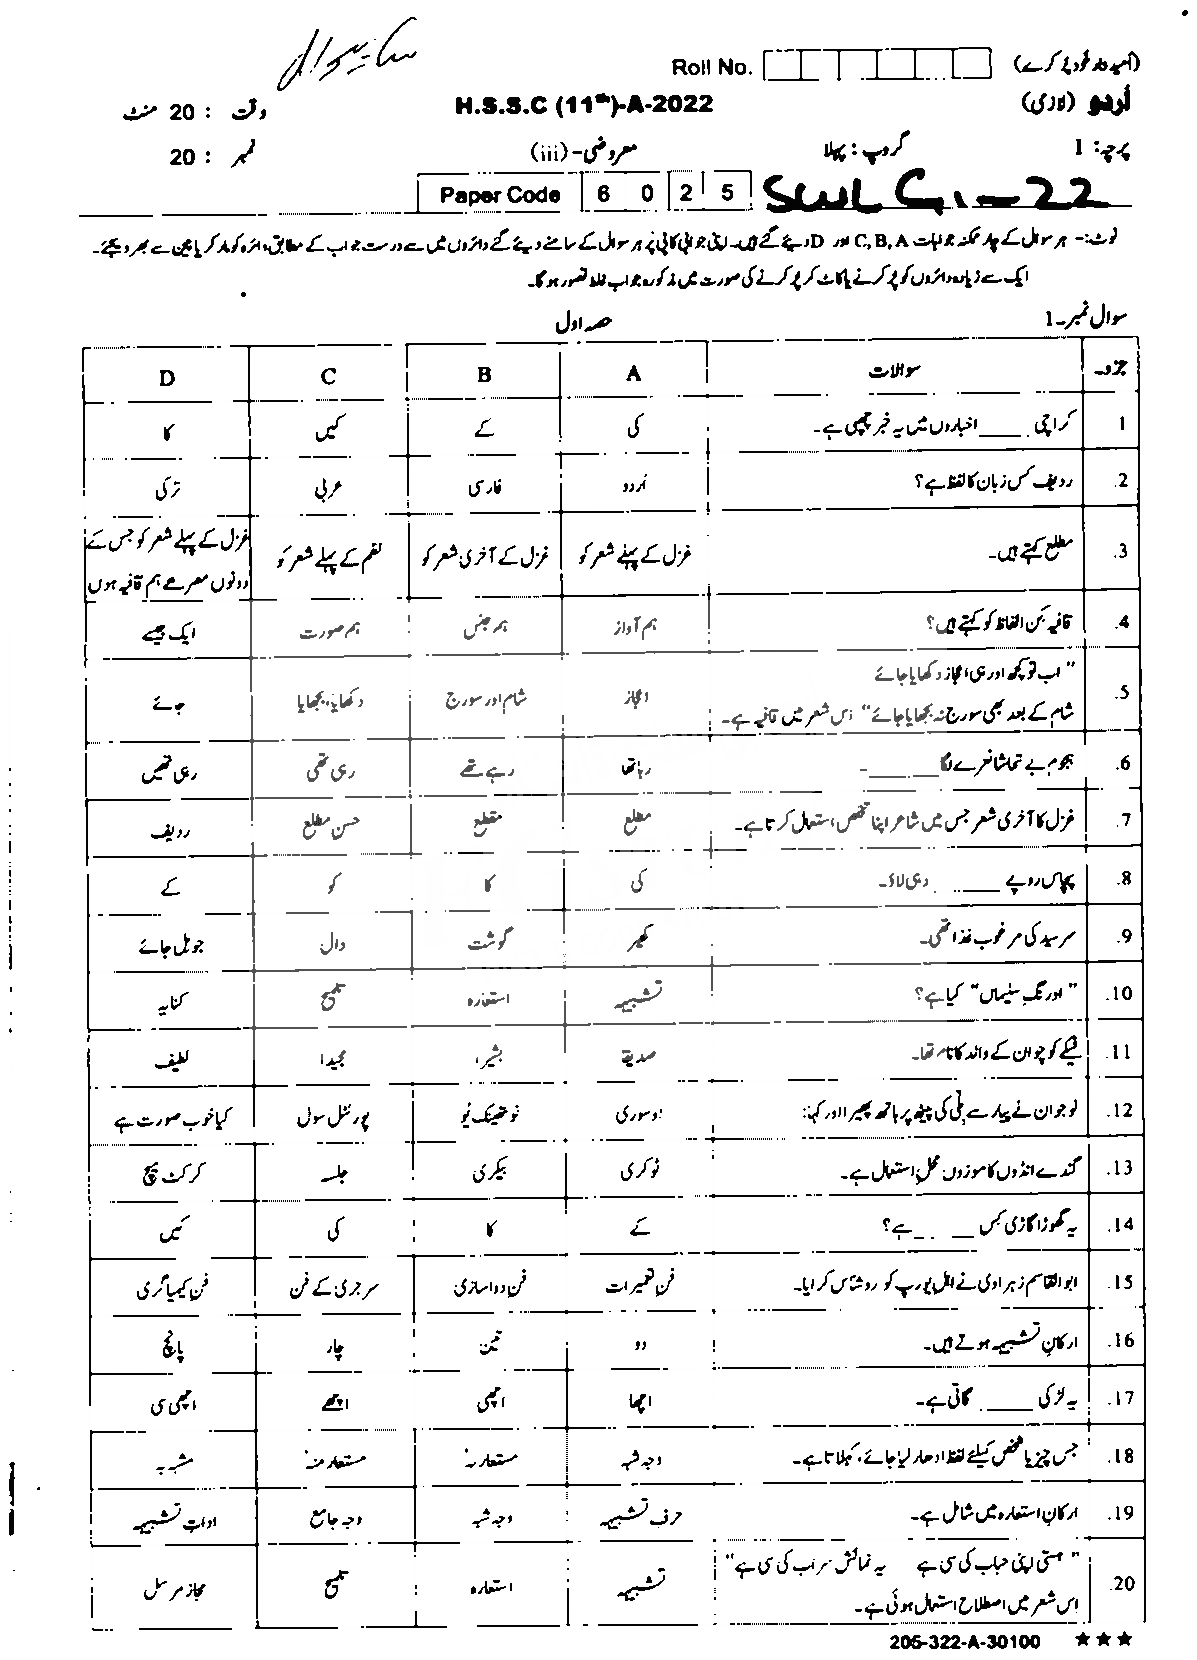 ساہیوال
Roll No. (امیدوار خود پُر کرے)
اُردو (لازمی) H.S.S.C (11th)-A-2022 وقت : 20 منٹ
پرچہ: I گروپ : پہلا معروضی-(iii) نمبر : 20
Paper Code 6 0 2 5 SWL G1-22
نوٹ:- ہر سوال کے چار ممکنہ جوابات C, B, A اور D دیئے گئے ہیں۔ اپنی جوابی کاپی پر ہر سوال کے سامنے دیئے گئے دائروں میں سے درست جواب کے مطابق دائرہ کو مارکر یا پین سے بھر دیجئے۔
ایک سے زیادہ دائروں کو پُر کرنے یا کاٹ کر پُر کرنے کی صورت میں مذکورہ جواب غلط تصور ہوگا۔
سوال نمبر-1 حصہ اول
جزو۔ سوالات A B C D
1 کراچی ____ اخباروں میں یہ خبر چھپی ہے۔ کی کے کیں کا
2. ردیف کس زبان کا لفظ ہے؟ اُردو فارسی عربی ترکی
3. مطلع کہتے ہیں۔ غزل کے پہلے شعر کو غزل کے آخری شعر کو نظم کے پہلے شعر کو غزل کے پہلے شعر کو جس کے
دونوں مصرعے ہم قافیہ ہوں
4. قافیہ کن الفاظ کو کہتے ہیں؟ ہم آواز ہم جنس ہم صورت ایک جیسے
5. "اب تو کچھ اور ہی اعجاز دکھایا جائے
شام کے بعد بھی سورج نہ بجھایا جائے" اس شعر میں قافیہ ہے۔ اعجاز شام اور سورج دکھایا، بجھایا جائے
6. ہجوم بے تحاشا نعرے لگا ____۔ رہا تھا رہے تھے رہی تھی رہی تھیں
7. غزل کا آخری شعر جس میں شاعر اپنا تخلص استعمال کرتا ہے۔ مطلع مقطع حسن مطلع ردیف
8. پچاس روپے ____ دہی لاؤ۔ کی کا کو کے
9. سرسید کی مرغوب غذا تھی۔ کھیر گوشت دال جو مل جائے
10. "اورنگِ سلیماں" کیا ہے؟ تشبیہ استعارہ تلمیح کنایہ
11. فیکے کوچوان کے والد کا نام تھا۔ صدیقا بشیرا مجیدا لطیف
12. نوجوان نے پیار سے بلی کی پیٹھ پر ہاتھ پھیرا اور کہا: نو تھینک یو پور لٹل سول کیا خوب صورت ہے
13. گندے انڈوں کا موزوں محلِ استعمال ہے۔ ٹوکری بیکری جلسہ کرکٹ میچ
14. یہ گھوڑا گاڑی کس ____ ہے؟ کے کا کی کیں
15. ابوالقاسم زہراوی نے اہل یورپ کو روشناس کرایا۔ فنِ تعمیرات فن دواسازی سرجری کے فن فن کیمیاگری
16. ارکانِ تشبیہ ہوتے ہیں۔ دو تین چار پانچ
17. یہ لڑکی ____ گاتی ہے۔ اچھا اچھی اچھے اچھی سی
18. جس چیز یا شخص کیلئے لفظ ادھار لیا جائے، کہلاتا ہے۔ وجہ شبہ مستعار لہ مستعار منہ مشبہ بہ
19. ارکانِ استعارہ میں شامل ہے۔ حرف تشبیہ وجہ شبہ وجہ جامع اداتِ تشبیہ
20. "ہستی اپنی حباب کی سی ہے یہ نمائش سراب کی سی ہے"
اس شعر میں اصطلاح استعمال ہوئی ہے۔ تشبیہ استعارہ تلمیح مجاز مرسل
205-322-A-30100 ★★★